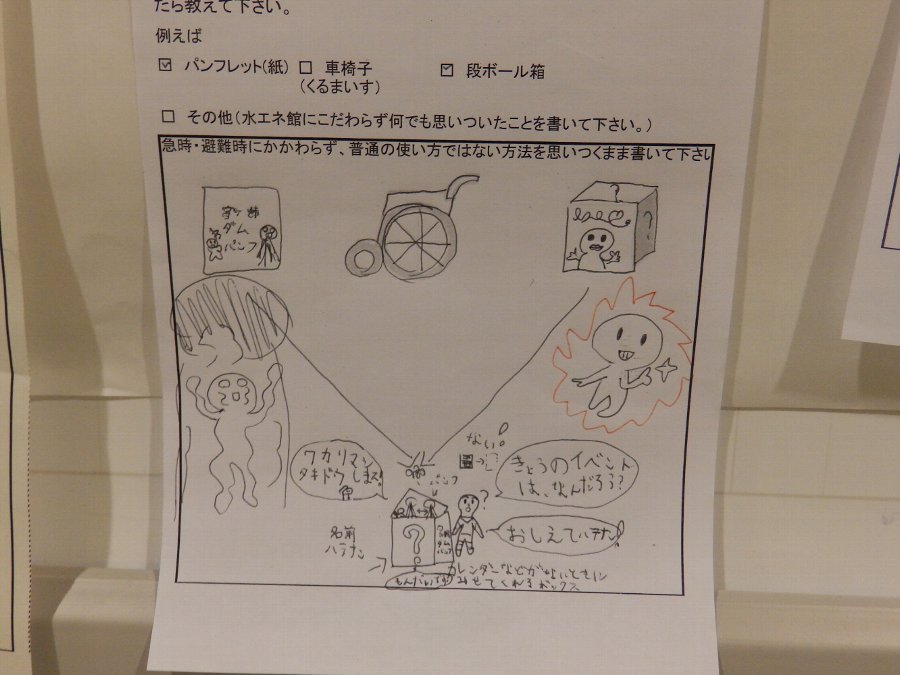 たら教えて下さい。
例えば
☑ パンフレット(紙) ☐ 車椅子 ☑ 段ボール箱
(くるまいす)
☐ その他(水エネ館にこだわらず何でも思いついたことを書いて下さい。)
急時・避難時にかかわらず、普通の使い方ではない方法を思いつくまま書いて下さい
宮ケ瀬
ダム
パンフ
?
?
ない!
ワカリマシ
タキドウします!
パンフ
きょうのイベント
は、なんだろう??
?
?
名前
ハテナン
おしえてハテナン!
カレンダーなどがないときに
みせてくれるボックス